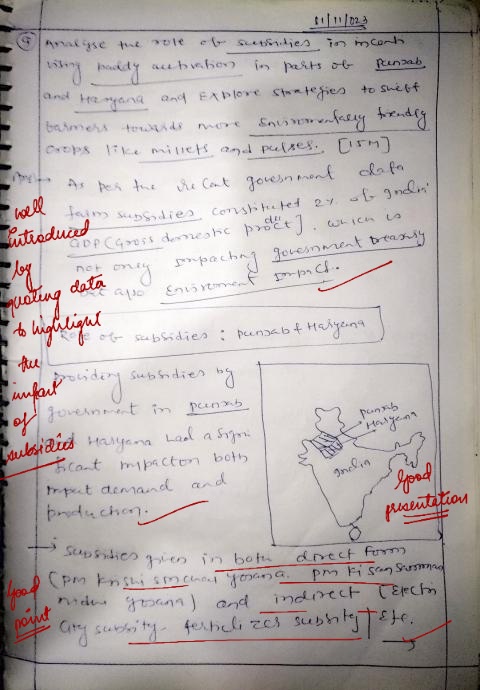 01/11/023
Q Analyse the role of subsidies in incenti
vising paddy cultivation in parts of Punjab
and Haryana and Explore strategies to shift
farmers towards more Environmentally friendly
crops like millets and pulses. [15M]
Ans → As per the recent government data
farm subsidies constituted 2% of India'
GDP (Gross domestic product]. which is
not only impacting government treasury
but also Enviroment impact.
well
introduced
by
quoting data
to highlight
the
impact
of
subsidies
Role of subsidies: Punjab & Haryana
Providing subsidies by
government in Punjab
and Haryana had a signi
ficant impact on both
input demand and
production.
Punjab
Haryana
India
Good
presentation
→ subsidies given in both direct form
(PM Krishi sinchai yojana. PM Kisan samman
yojana) and indirect (Electri
city subsity. fertilizer subsity) Etc.
Good
point